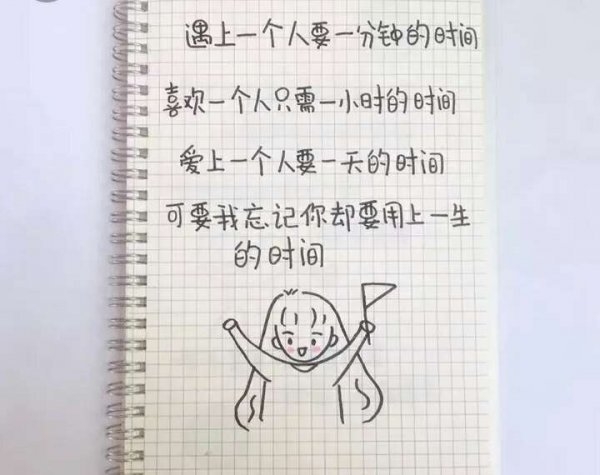 遇上一个人要一分钟的时间
喜欢一个人只需一小时的时间
爱上一个人要一天的时间
可要我忘记你却要用上一生
的时间